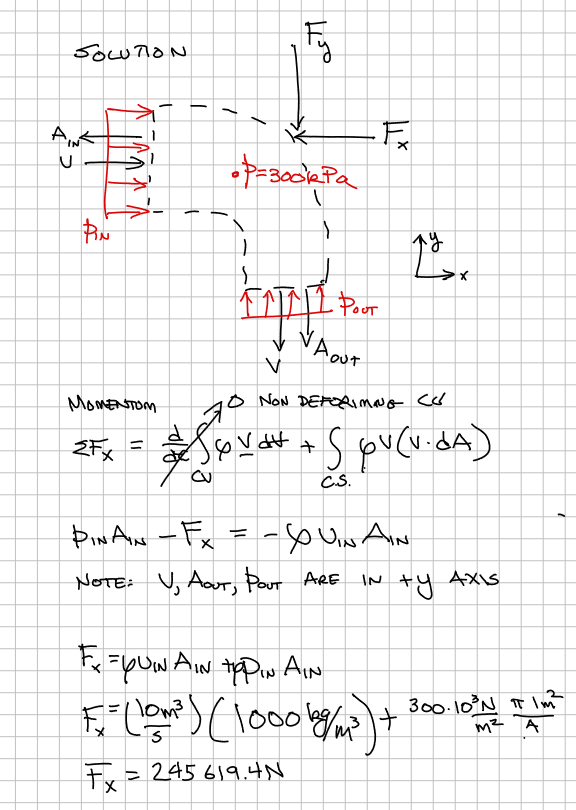 SOLUTION
F_y
A_IN
U
F_x
p=300kPa
p_IN
y
x
p_OUT
V
A_OUT
MOMENTUM
0 NON DEFORMING CV
ΣF_x = d/dt ∫_CV ρ V dV + ∫_C.S. ρV(V·dA)
p_IN A_IN - F_x = -ρ U_IN A_IN
NOTE: V, A_OUT, p_OUT ARE IN +y AXIS
F_x = ρ U_IN A_IN + p_IN A_IN
F_x = (10m³/s)(1000 kg/m³) + 300·10³N/m² π 1m²/4
F_x = 245 619.4N